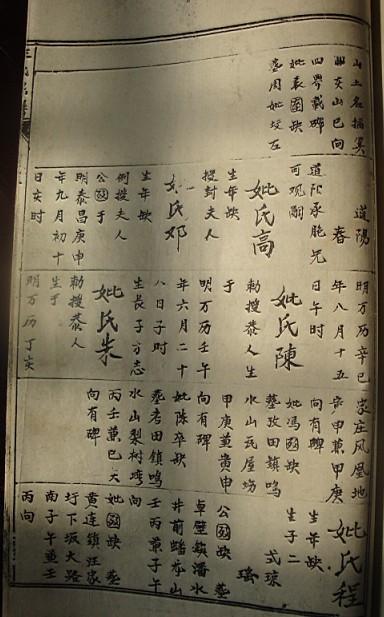 山土名插箕
凹亥山巳向
四界載碑
妣袁殁缺
葬周妣坟左
道陽
春
道阳承胞兄
可观嗣
妣氏高
生年缺
授封夫人
妣氏邓
生年缺
例授夫人
公殁于
明泰昌庚申
年九月初十
日亥时
明万历辛巳
年八月十五
日午时
妣氏陳
勅授恭人生
于
明万历壬午
年六月二十
八日子时
生長子方志
妣氏朱
勅授恭人
生于
明万历丁亥
家庄凤凰地
寅申兼甲庚
向有碑
妣馮殁缺
葬孜田鎮鸣
水山瓦屋坊
甲庚兼寅申
向有碑
妣陳卒缺
葬考田鎮鸣
水山梨树塆
丙壬兼巳亥
向有碑
妣氏程
生年缺
生子二
式琼
公殁缺 葬
卓壁鎮潘水
井前蟠龙山
壬丙兼子午
妣殁缺 葬
黄連鎮汪家
圩下坂大路
南子午兼壬
丙向